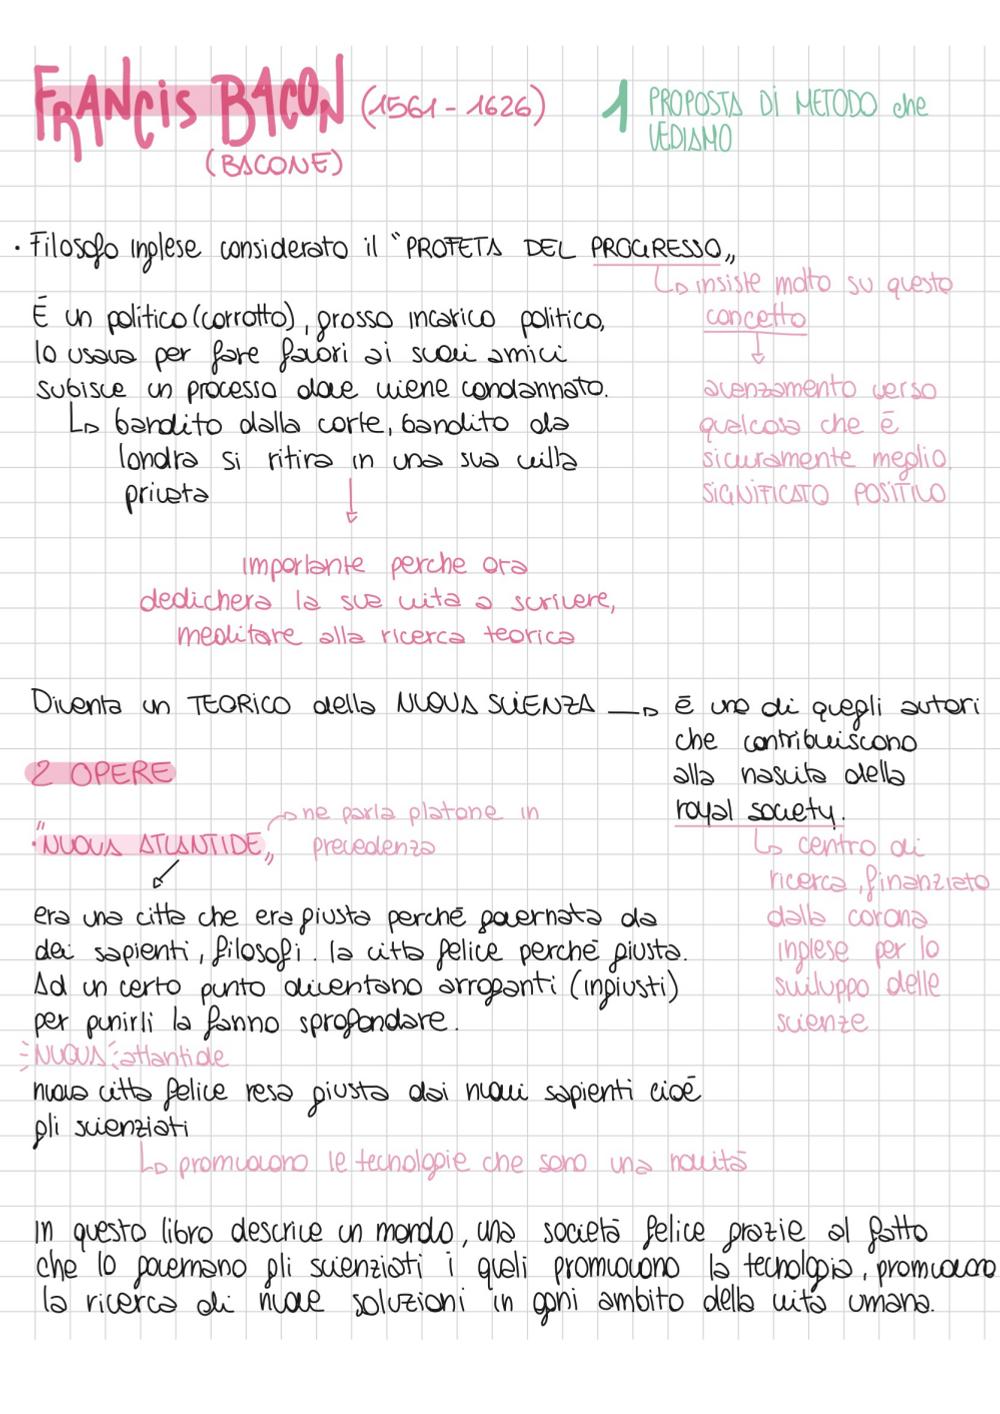 FRANCIS BACON (1561-1626)
(BACONE)
1 PROPOSTA DI METODO che
VEDIAMO
· Filosofo inglese considerato il "PROFETA DEL PROGRESSO"
↳ insiste molto su questo
concetto
↓
avanzamento verso
qualcosa che è
sicuramente meglio.
SIGNIFICATO POSITIVO
È un politico (corrotto), grosso incarico politico,
lo usava per fare favori ai suoi amici
subisce un processo dove viene condannato.
↳ bandito dalla corte, bandito da
londra si ritira in una sua villa
privata
↓
importante perche ora
dedichera la sua vita a scrivere,
meditare alla ricerca teorica
Diventa un TEORICO della NUOVA SCIENZA → è uno di quegli autori
che contribuiscono
alla nascita della
royal society.
↳ centro di
ricerca, finanziato
dalla corona
inglese per lo
sviluppo delle
scienze
2 OPERE
· "NUOVA ATLANTIDE" → ne parla platone in
precedenza
↙
era una citta che era giusta perché governata da
dei sapienti, filosofi. la citta felice perché giusta.
Ad un certo punto diventano arroganti (ingiusti)
per punirli la fanno sprofondare.
NUOVA atlantide
nuova citta felice resa giusta dai nuovi sapienti cioè
gli scienziati
↳ promuovono le tecnologie che sono una novità
In questo libro descrive un mondo, una società felice grazie al fatto
che lo governano gli scienziati i quali promuovono la tecnologia, promuovono
la ricerca di nuove soluzioni in ogni ambito della vita umana.